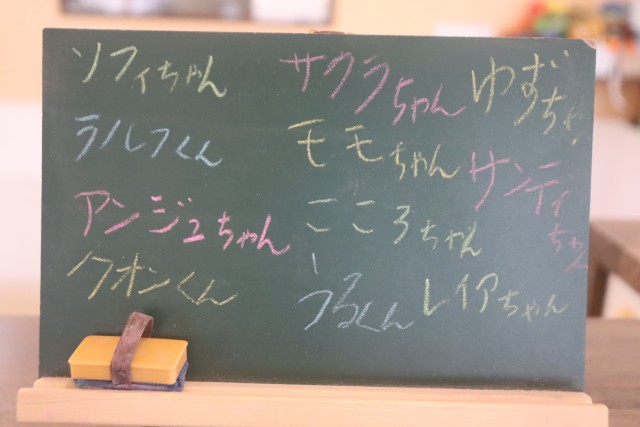 ソフィちゃん
ラルフくん
アンジュちゃん
クオンくん
サクラちゃん
モモちゃん
こころちゃん
つるくん
ゆずちゃ
サンティちゃん
レイアちゃん